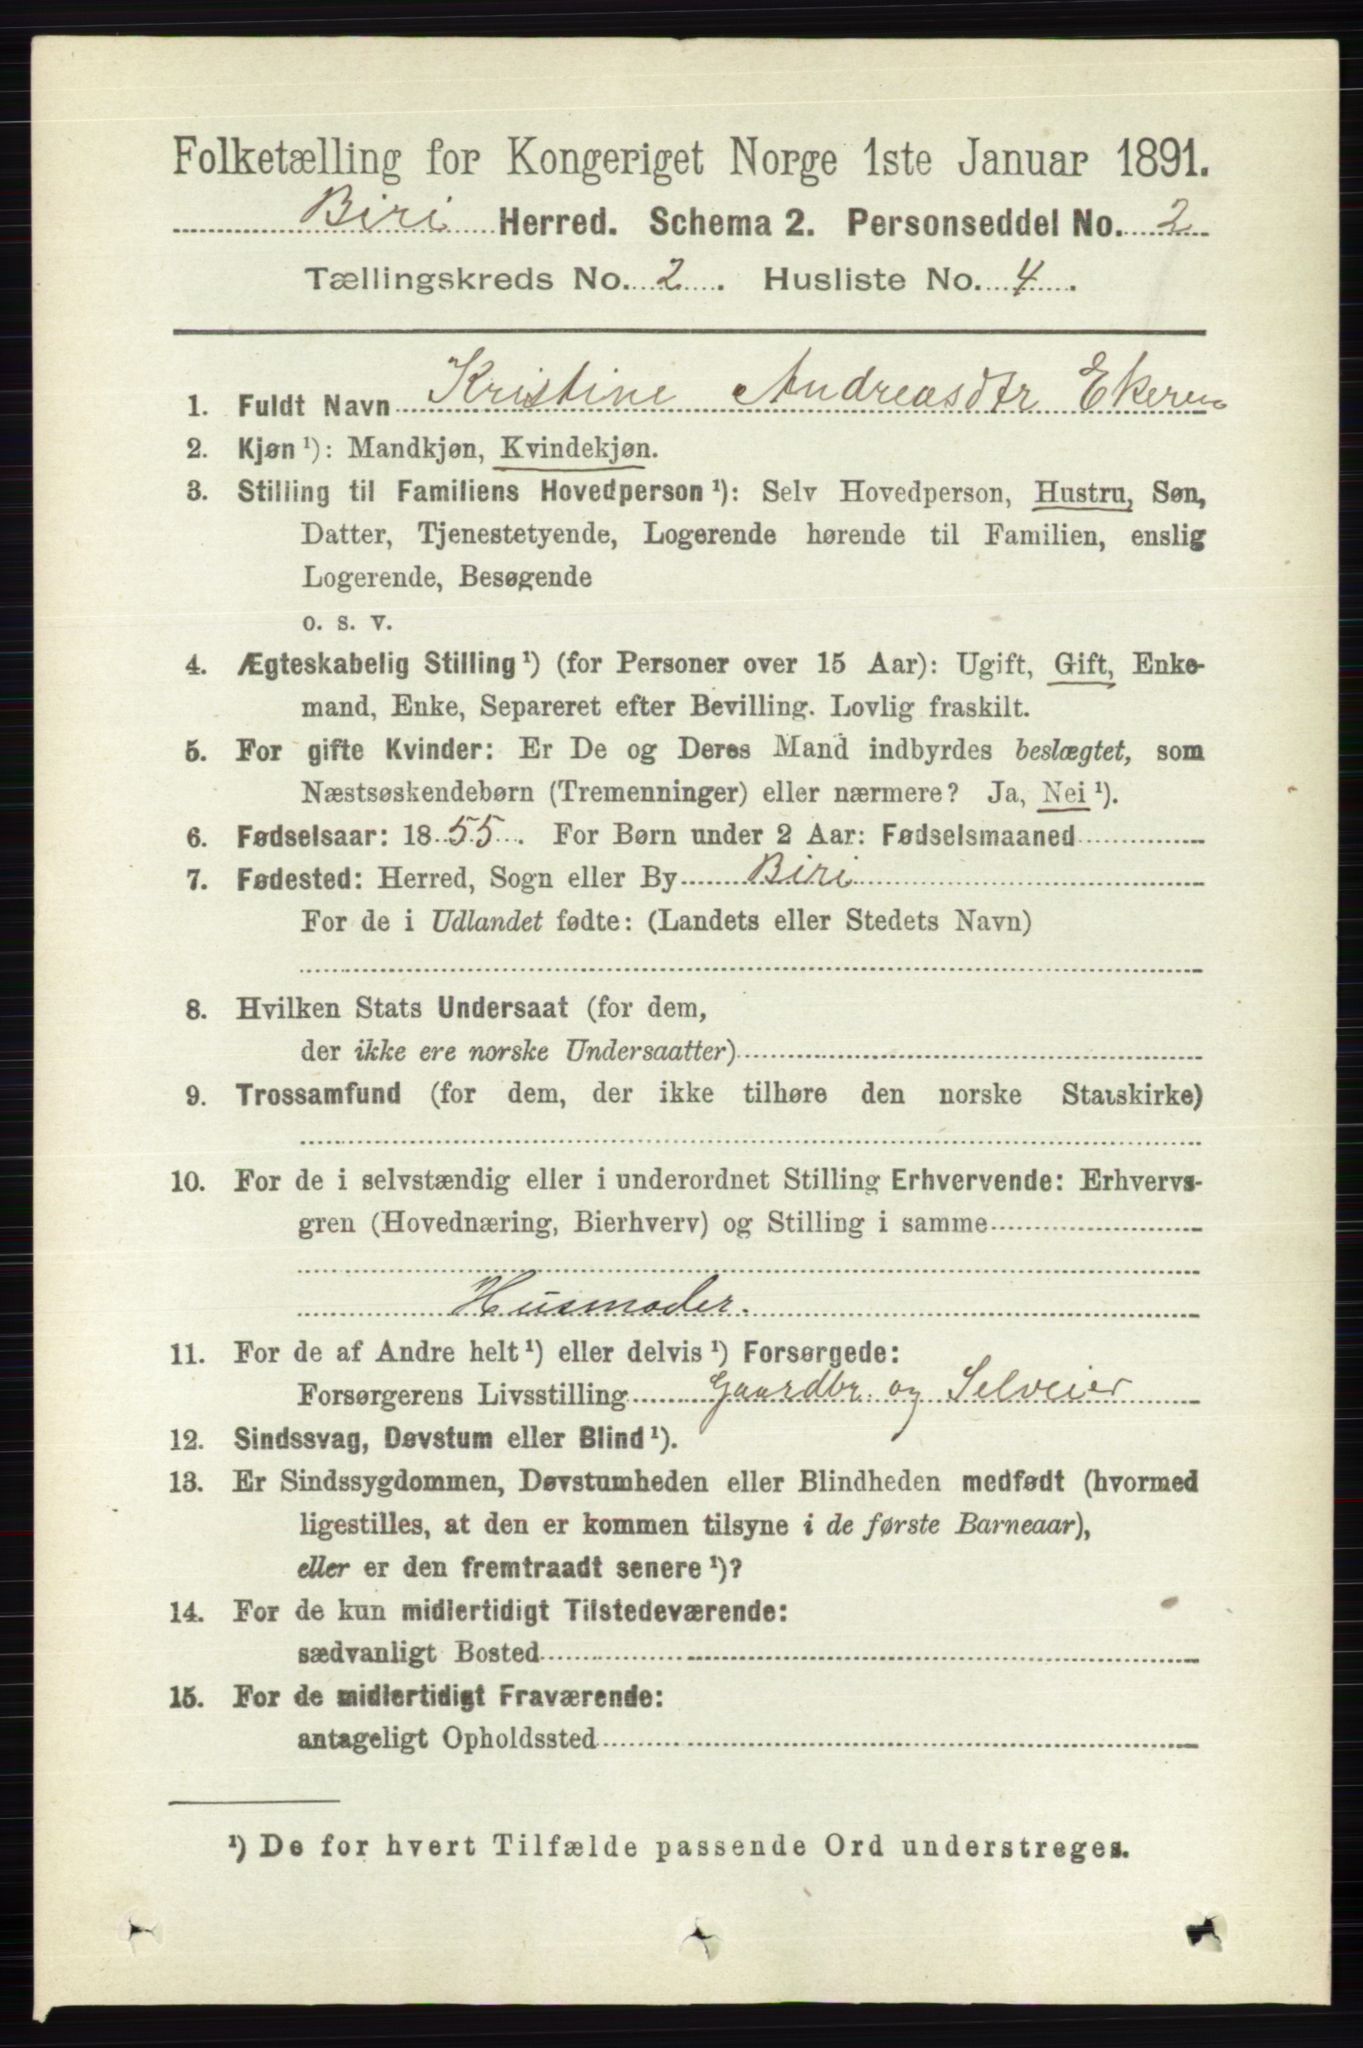 Folketælling for Kongeriget Norge 1ste Januar 1891.
Biri Herred. Schema 2. Personseddel No. 2
Tællingskreds No. 2. Husliste No. 4.
1. Fuldt Navn Kristine Andreasdtr Ekeren
2. Kjøn¹): Mandkjøn, Kvindekjøn.
3. Stilling til Familiens Hovedperson¹): Selv Hovedperson, Hustru, Søn,
Datter, Tjenestetyende, Logerende hørende til Familien, enslig
Logerende, Besøgende
o. s. v.
4. Ægteskabelig Stilling¹) (for Personer over 15 Aar): Ugift, Gift, Enke-
mand, Enke, Separeret efter Bevilling. Lovlig fraskilt.
5. For gifte Kvinder: Er De og Deres Mand indbyrdes beslægtet, som
Næstsøskendebørn (Tremenninger) eller nærmere? Ja, Nei¹).
6. Fødselsaar: 1855. For Børn under 2 Aar: Fødselsmaaned
7. Fødested: Herred, Sogn eller By Biri
For de i Udlandet fødte: (Landets eller Stedets Navn)
8. Hvilken Stats Undersaat (for dem,
der ikke ere norske Undersaatter)
9. Trossamfund (for dem, der ikke tilhøre den norske Statskirke)
10. For de i selvstændig eller i underordnet Stilling Erhvervende: Erhvervs-
gren (Hovednæring, Bierhverv) og Stilling i samme
Husmoder.
11. For de af Andre helt¹) eller delvis¹) Forsørgede:
Forsørgerens Livsstilling Gaardbr. og Selveier
12. Sindssvag, Døvstum eller Blind¹).
13. Er Sindssygdommen, Døvstumheden eller Blindheden medfødt (hvormed
ligestilles, at den er kommen tilsyne i de første Barneaar),
eller er den fremtraadt senere¹)?
14. For de kun midlertidigt Tilstedeværende:
sædvanligt Bosted
15. For de midlertidigt Fraværende:
antageligt Opholdssted
¹) De for hvert Tilfælde passende Ord understreges.